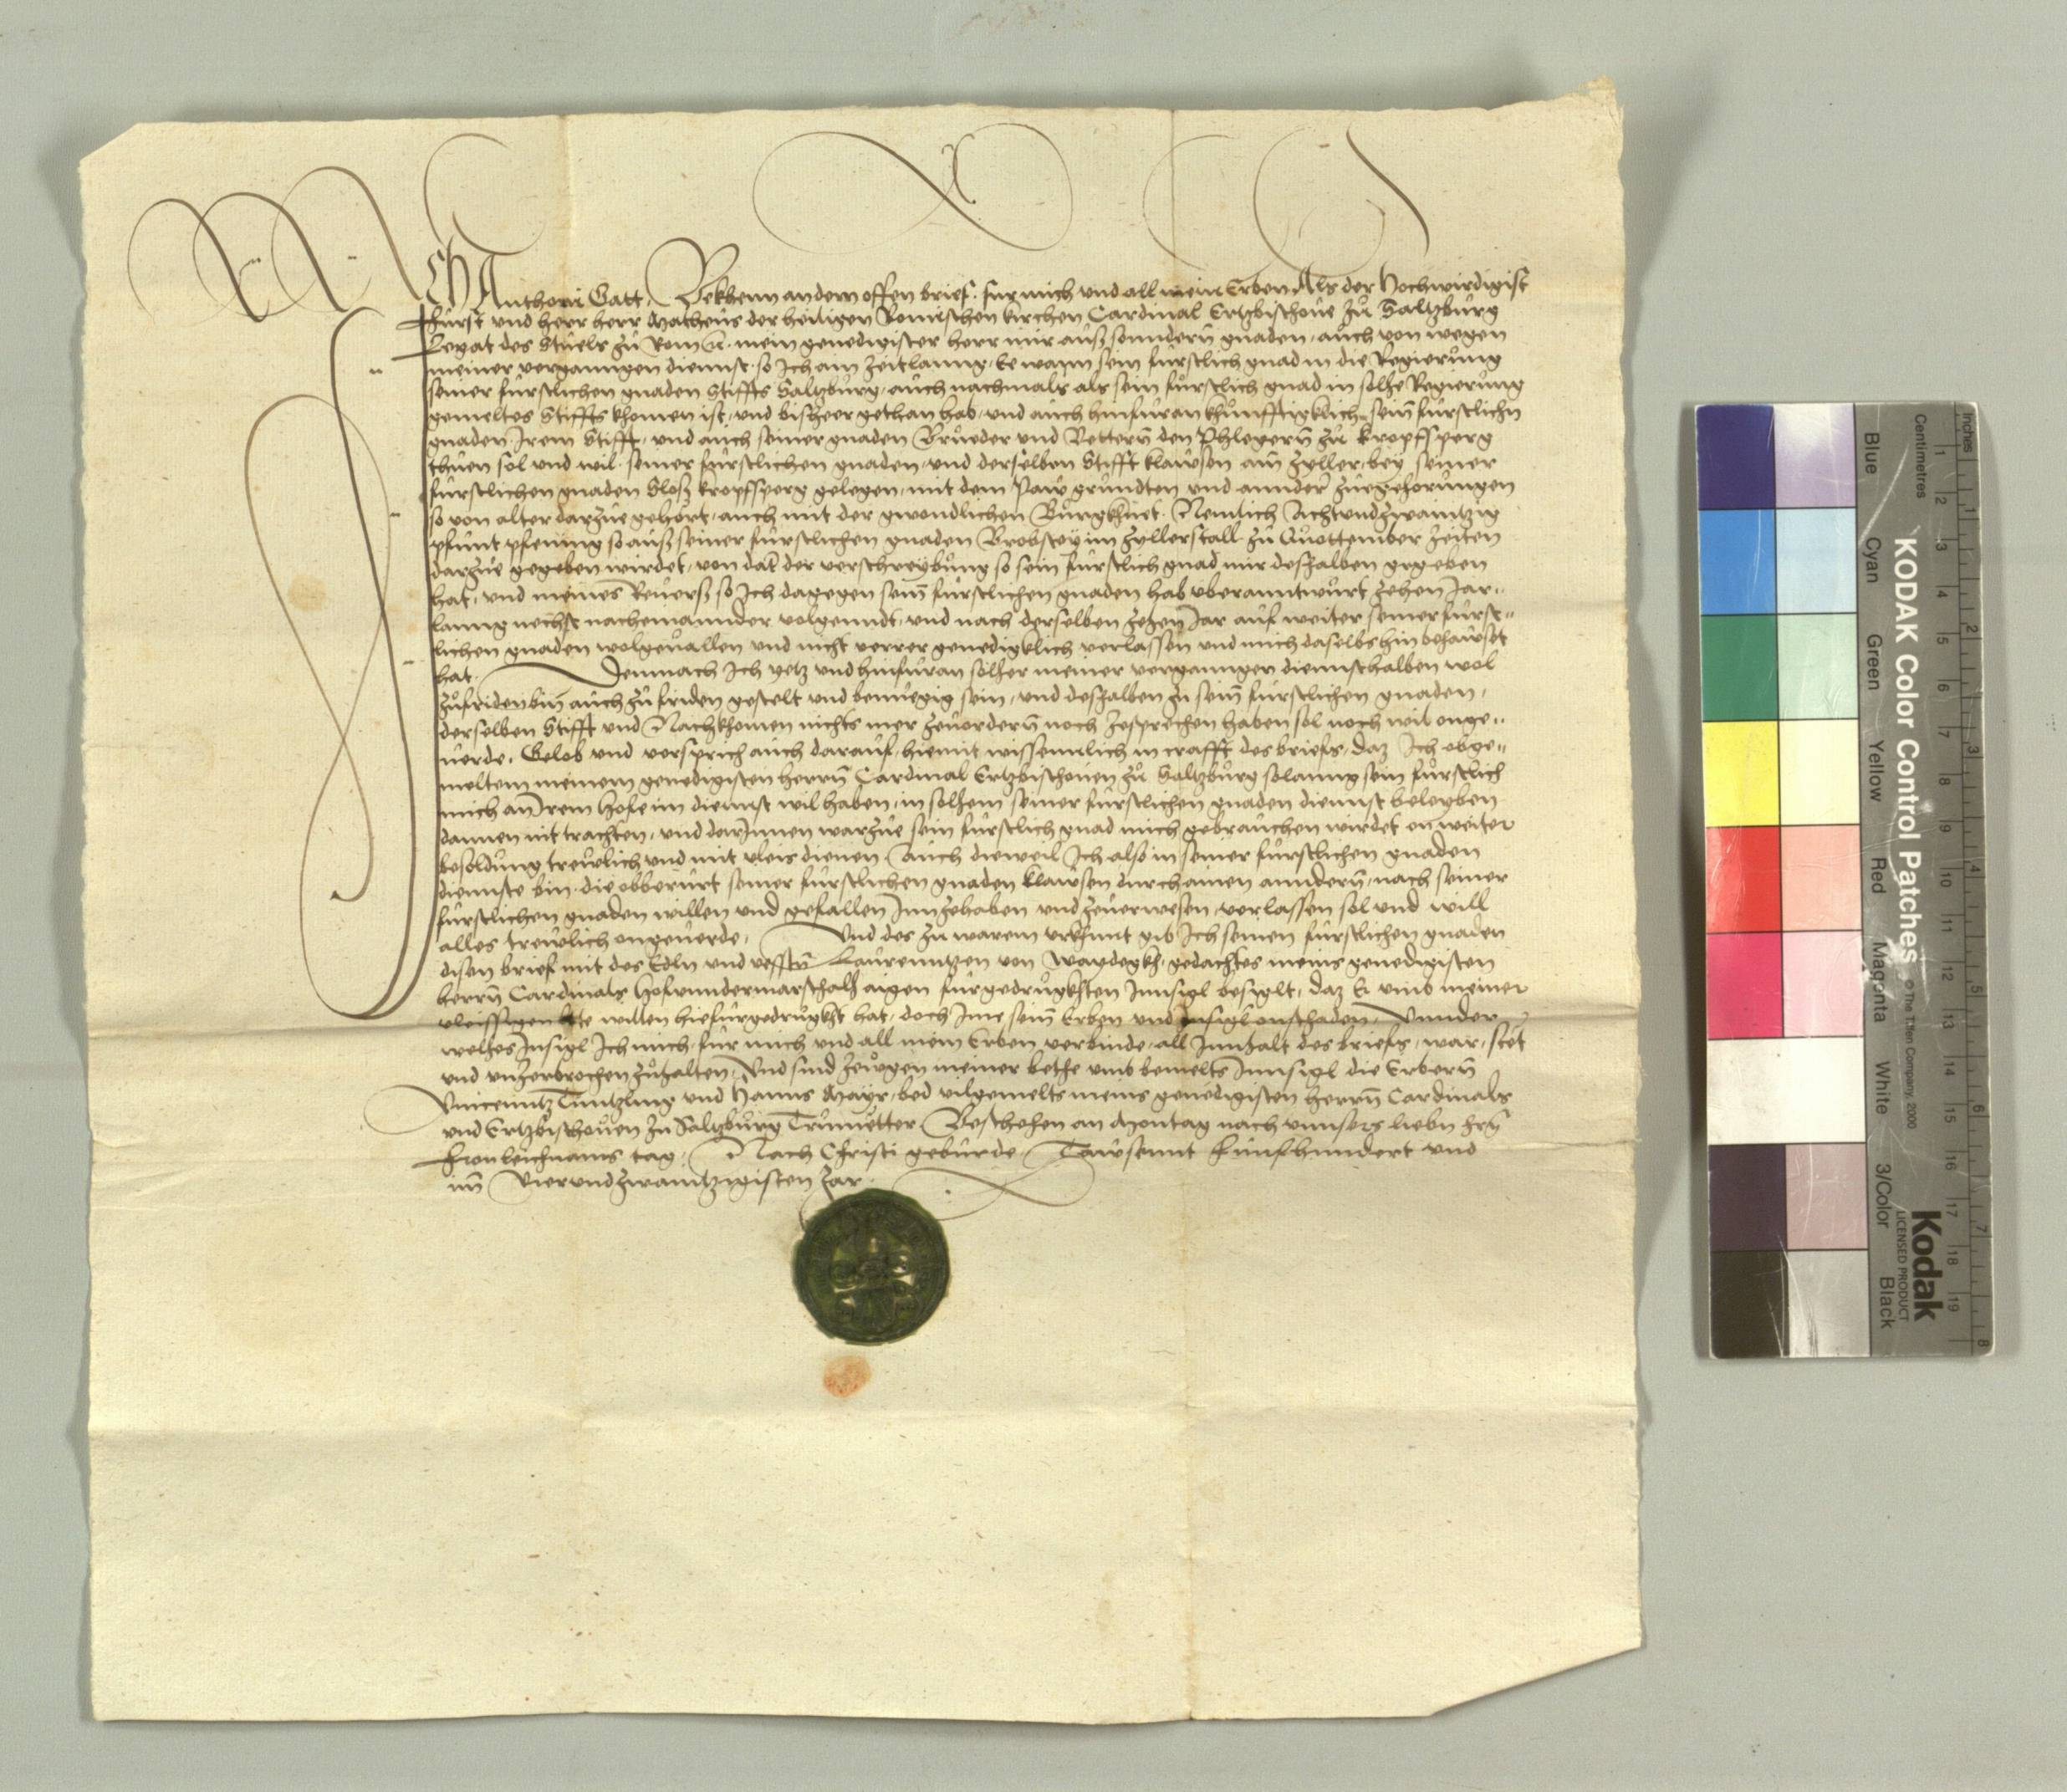 Ich Anthoni Gatt. Bekhenn an dem offen brief. fur mich vnd all mein Erben Als der Hochwirdigist
Fürst vnd herr herr Matheus der heiligen Römischen kirchen Cardinal Ertzbischoue zu Saltzburg
Legat des Stuels zu Rom &. mein genedigister herr mir auß sonndern gnaden, auch von wegen
meiner vergangen dienst. so Ich ain zeitlanng. Ee wann sein fürstlich gnad in die Regierung
seiner fürstlichen gnaden Stiffts Saltzburg. auch nachmals als sein fürstlich gnad in solhe Regierung
gemeltes Stiffts khomen ist, vnd bißheer gethan hab, vnd auch hinfüran khunfftigklich seinn fürstlichn
gnaden Irem Stifft, vnd auch seiner gnaden Brueder vnd Vettern den Phlegern zu Kropfsperg
thuen sol vnd wil. seiner fürstlichen gnaden, vnd derselben Stifft klausen am Zyller, bey seiner
fürstlichen gnaden Sloß Kropfsperg gelegen, mit dem Paw gründten vnd annder zuegehorungen
so von alter darzue gehört, auch mit der gwondlichen Burgkhuet. Nemlich Achtundzwaintzig
phunt phening so auß seiner fürstlichen gnaden Brobstey im Zyllerstall zu Quottember zeiten
darzue gegeben wirdet, von dat der verschreybung so sein fürstlich gnad mir deshalben gegeben
hat, vnd meines Reuerß so Ich dagegen seinn fürstlichen gnaden hab vberanntwurt zehen Jar
lanng nechst nacheinannder volgenndt, vnd nach derselben zehen Jar auf weiter seiner fürst
lichen gnaden wolgeuallen vnd nicht verrer genedigklich verlassen vnd mich daselbshin behawst
hat. Demnach Ich yetz vnd hinfüran solher meiner vergangen diennsthalben wol
zufriden bin auch zu friden gestelt vnd benuegig sein, vnd deshalben zu seinn fürstlichen gnaden,
derselben Stifft vnd Nachkhomen nichts mer zeuordern noch zesprechen haben sol noch wil onge
uerde. Gelob vnd versprich auch darauf, hiemit wissenntlich in crafft des briefs, daz Ich obge
meltem meinem genedigisten herrn Cardinal Ertzbischouen zu Saltzburg solanng sein fürstlich
mich an Irem Hofe im diennst wil haben, in solhem seiner fürstlichen gnaden diennst beleyben
dannen nit trachten, vnd darInnen warzue sein fürstlich gnad mich gebrauchen wirdet on weiter
besoldung treulich vnd mit vleis dienen. Auch dieweil Ich also in seiner fürstlichen gnaden
diennste bin. die obberürt seiner fürstlichen gnaden klawsen durch ainen anndern, nach seiner
fürstlichen gnaden willen vnd gefallen Innzehaben vnd zeuerwesen, verlassen sol vnd will
alles treulich ongeuerde. Vnd des zu warem vrkhunt gib Ich seinen fürstlichen gnaden
disen brief mit des Edln vnd vessten Laurenntzen von Waydegkh, gedachtes meins genedigisten
herrn Cardinals Hofvnndermarschalh aigen fürgedrugkhten Innsigl besiglt, daz Er vmb meiner
vleissigen bete willen hiefürgedrugkht hat, doch Ime seinn Erben vnd Insigl onschaden. Vnnder
welhes Insigl Ich mich, für mich vnd all mein Erben verbinde, all Innhalt des briefs, war, stet
vnd vnzerbrochen zuhalten. Vnd sind zeugen meiner bethe vmb bemelts Innsigl die Erbern
Vincenntz Tüntzling vnd Hanns Mayr, bed vilgemelts meins genedigisten herrn Cardinals
vnd Ertzbischouen zu Saltzburg Trumetter. Beschehen an Montag nach vnnsers liebn hrn
Fronleichnams tag. Nach Christi geburde. Tawsennt Funfhundert vnd
im Vierundzwaintzigisten Jar.
KODAK Color Control Patches
© The Tiffen Company, 2000
Kodak
LICENSED PRODUCT
Blue Cyan Green Yellow Red Magenta White 3/Color Black
Inches 1 2 3 4 5 6 7 8
Centimetres 1 2 3 4 5 6 7 8 9 10 11 12 13 14 15 16 17 18 19